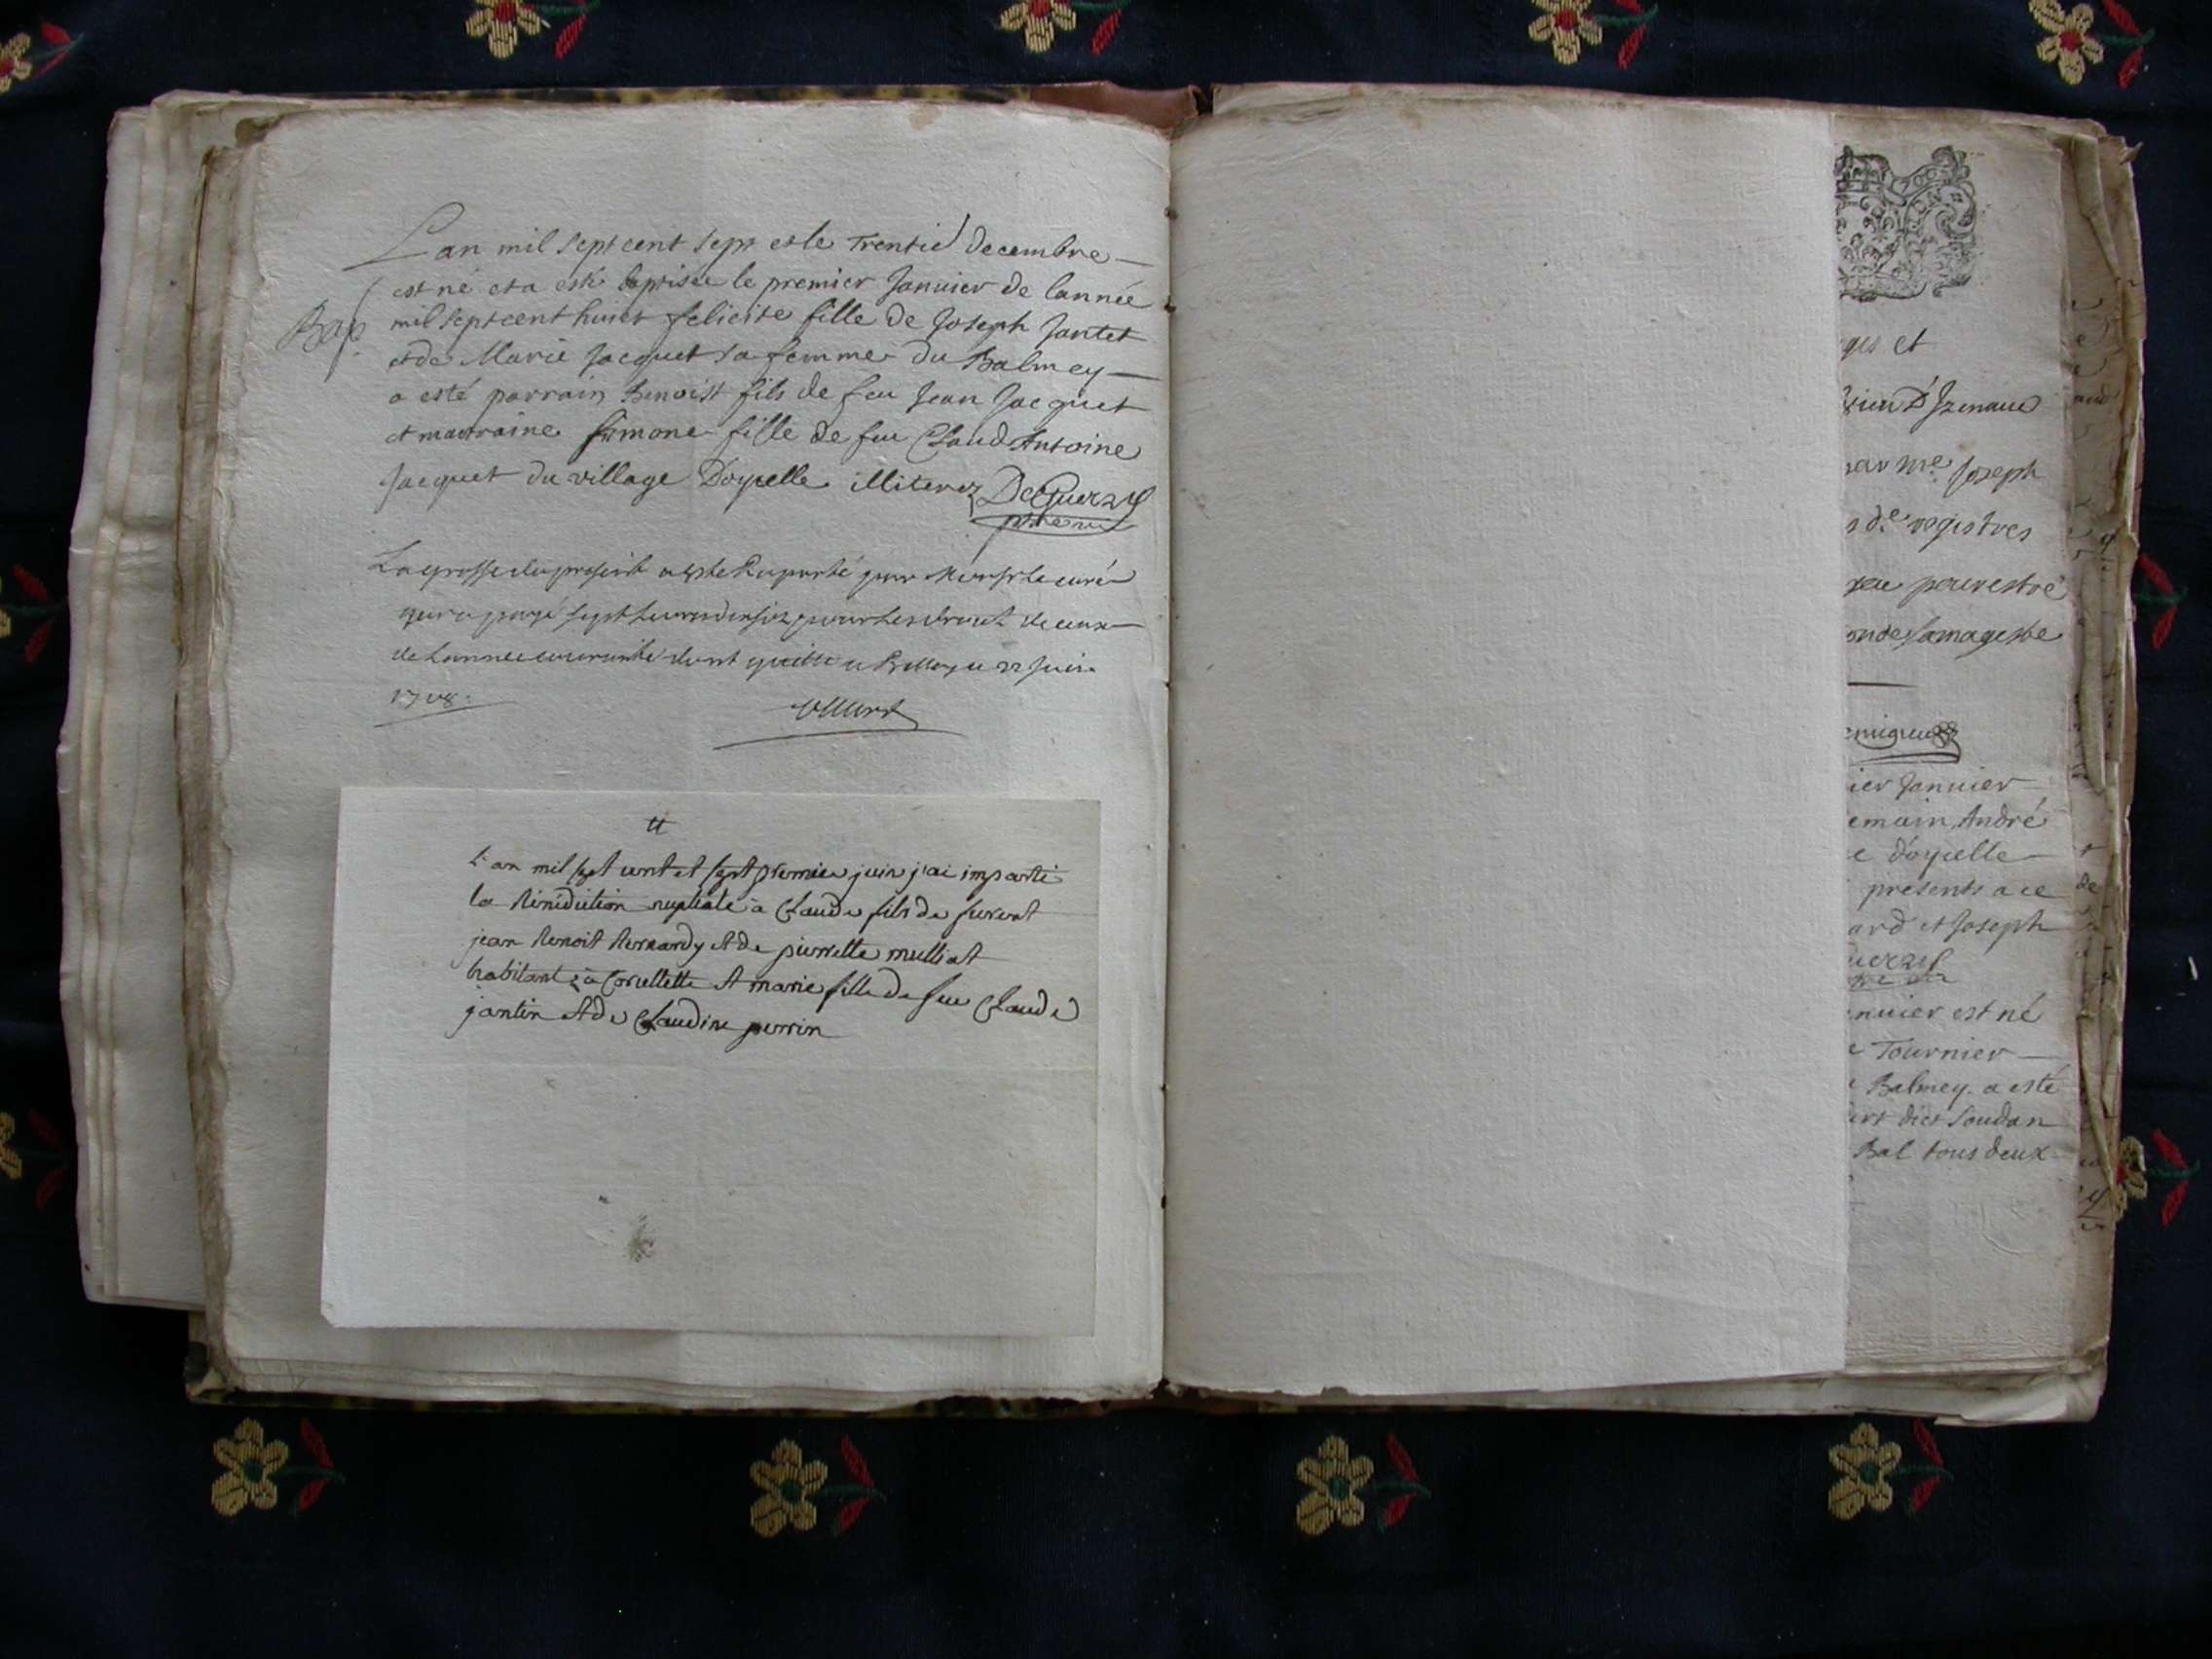 Lan mil sept cent sept et le Trentié decembre
Bap
est né et a esté baptisée le premier Janvier de lannée
mil sept cent huict felicite fille de Joseph Jantet
et de Marie Jacquet sa femme du Balmey
a esté parrain Benoist fils de feu Jean Jacquet
et marraine Simone fille de feu Claud Antoine
Jacquet du village Doyselle illiterez DeGuerzy
ptre
La grosse du present a esté Raporté par Monsr le curé
qui a payé sept livres dix solz pour les droit de ceux
de lannee courante dont quitte a Belley ce 22 Juin
1708.
L'an mil sept cent et sept premier juin j'ai imparti
la bénédiction nuptiale à Claude fils de furent
jean benoit bernardy et de pierrette mulliat
habitant à Corcellette et marie fille de feu Claude
jantin et de Claudine perrin
ges et
par me Joseph
s de registres
peu pour estre
onde samageste
ier Janvier
emain, André
e d'oyselle
presents a ce
ard et Joseph
uerzy
nvier est né
e Tournier
Balmey. a esté
ert dict Soudan
Bal tous deux